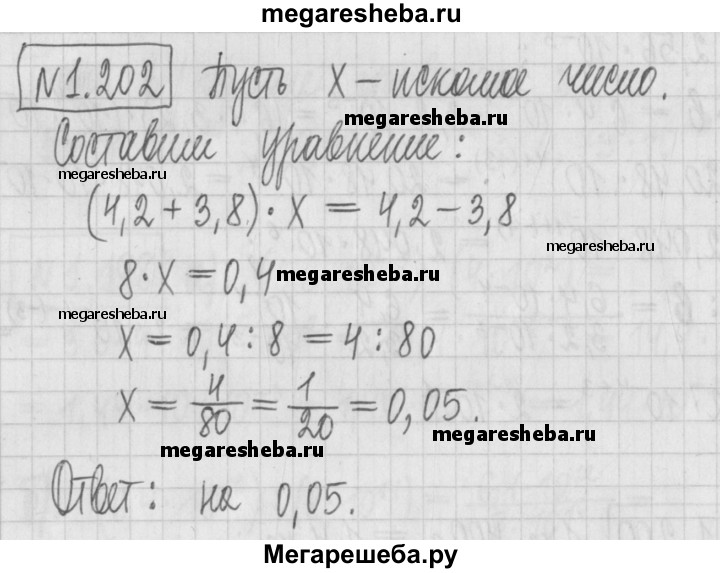 megaresheba.ru
N 1.202 Пусть X – искомое число.
megaresheba.ru
Составим уравнение:
megaresheba.ru
(4,2 + 3,8) · X = 4,2 – 3,8
megaresheba.ru
8 · X = 0,4
megaresheba.ru
megaresheba.ru
X = 0,4 : 8 = 4 : 80
X = 4/80 = 1/20 = 0,05.
megaresheba.ru
megaresheba.ru
Ответ: на 0,05.
Мегарешеба.ру